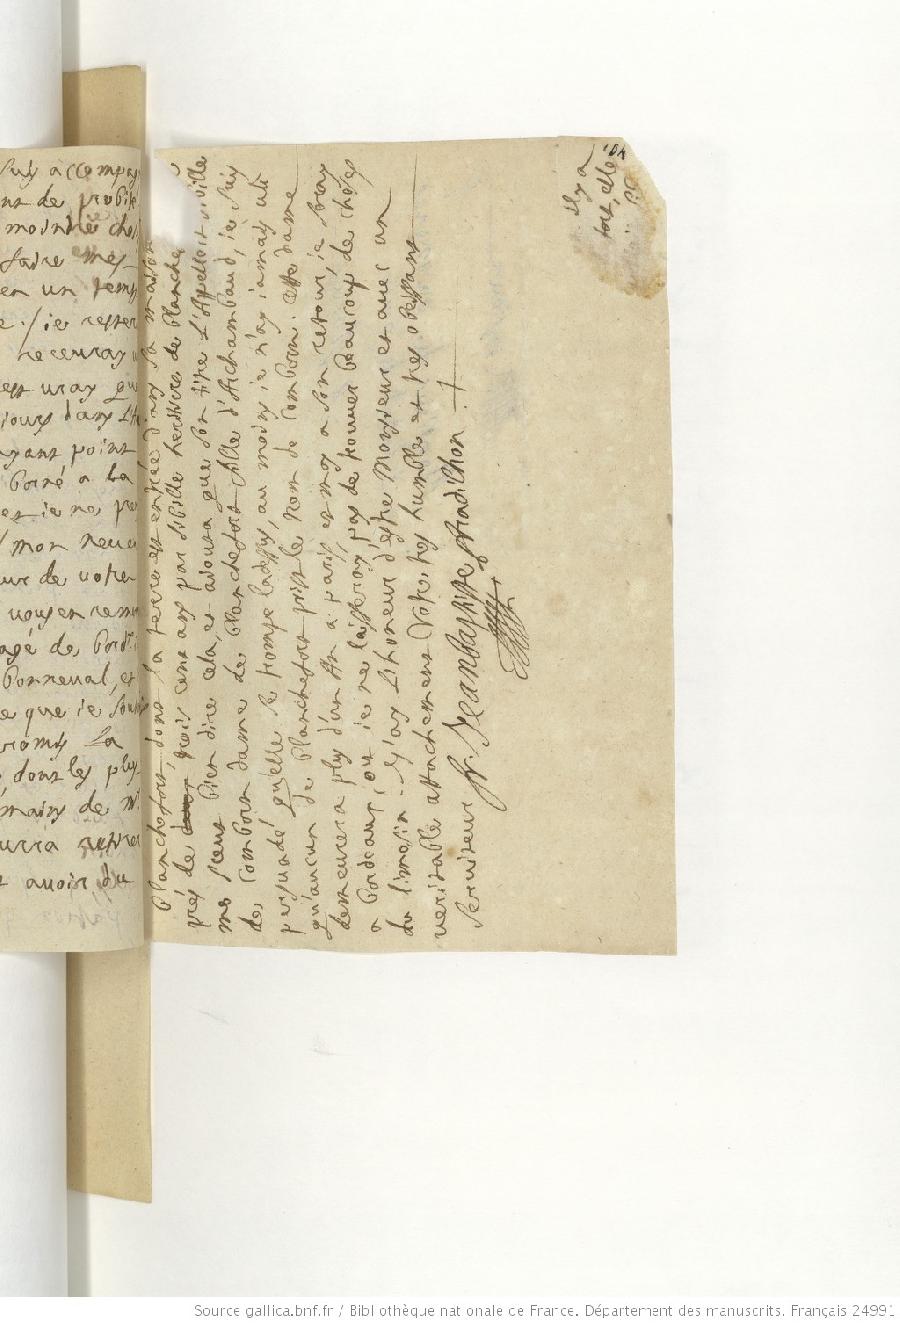 suis accompa
nt de probite
moindre cho
faire mes
en un temps
e. Je rester
neceuray
est vray que
jours dans
ayant point
boré a la
et je ne pe
mon neveu
ur de votre
vous en reme
agé de Bord
Bonneval, et
e que je sou
romis la
dont les plus
mains de Mr
urra
avoir, ou
Planchefort, dont la terre est entrée dans sa maison
prés de trois cens ans par sibille heritiere de Planche
me sceut bien dire cela, et adjouta que son titre l'appelloit sibille
de Comborn dame de Planchefort fille d'Archambaud, je suis
persuadé qu'elle se trompe ladessus, au moins je n'ay jamais
qu'aucun de Planchefort prist le nom de Comborn. cette dame
demeurera plus d'un an a paris et moy a son retour, je seray
a Bordeaux, où je ne laisseray pas de trouver beaucoup de choses
du Limosin. J'ay l'honeur d'estre Monsieur et avec un
veritable attachement Votre tres humble et tres obeissant
serviteur fr. Jean baptiste pradilhon.
il y a
tort, elle
Source gallica.bnf.fr / Bibliothèque nationale de France. Département des manuscrits. Français 24991